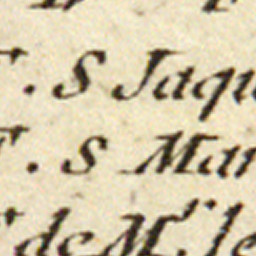 . S Jaqu
. S Mar
de M.r le